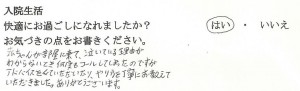 入院生活
快適にお過ごしになれましたか? はい ・ いいえ
お気づきの点をお書きください。
赤ちゃんが部屋に来て、泣いている理由が
わからないとき何度もコールしてしまったのですが
丁寧に教えて
いただきました。ありがとうございます。